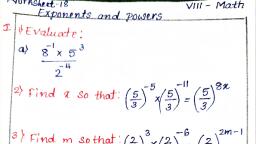 Worksheet-18
VIII - Math
Exponents and powers
I. Evaluate:
a) 8⁻¹ × 5³ / 2⁻⁴
2) Find x so that: (5/3)⁻⁵ × (5/3)⁻¹¹ = (5/3)⁸ˣ
3) Find m so that: (2 )³ × (2 )⁻⁶ (2 )²ᵐ⁻¹